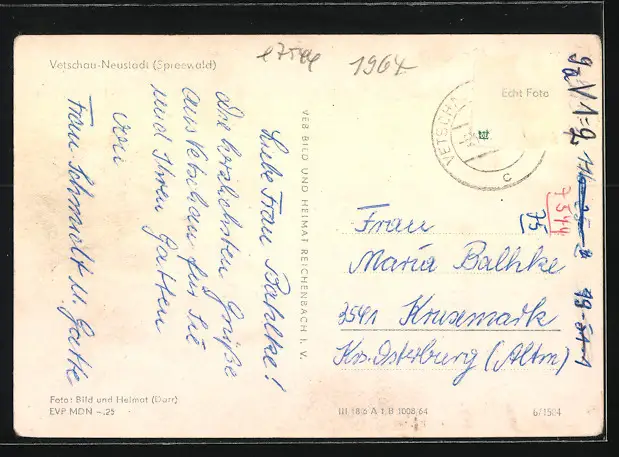 Vetschau-Neustadt (Spreewald)
e7544
1964
Echt Foto
VETSCHA
c
Liebe Frau Bahlke!
Die herzlichsten Grüße
aus Vetschau für Sie
und Ihren Gatten
von
Frau Schmidt u. Gatte
VEB BILD UND HEIMAT REICHENBACH I. V.
7544
75
Frau
Maria Bahlke
3541 Krusemark
Krs. Osterburg (Altm)
Foto: Bild und Heimat (Darr)
EVP MDN -.25
III 18/6 A 1 B 1008/64
6/1504